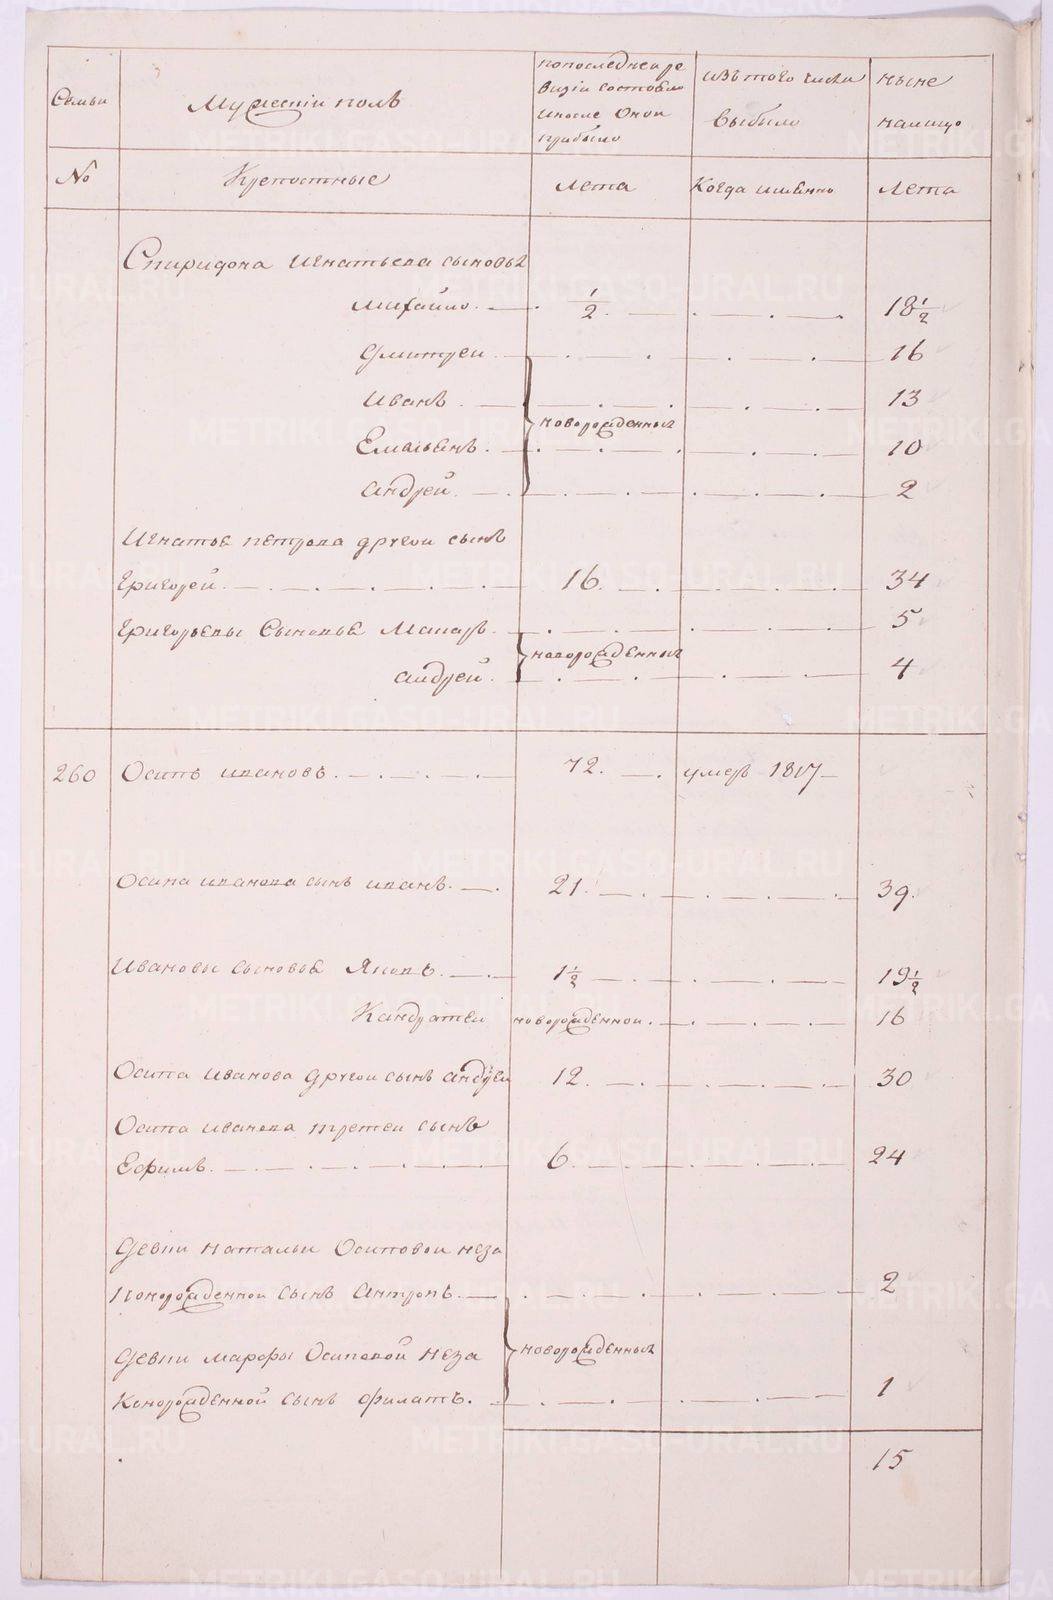 Семьи
Мужескiи полъ
попоследнеи ре
визiи состояло
ипосле Онои
прибыло
изътого числа
выбыло
ныне
налицо
№
Крепостные
Лета
Когда имянно
Лета
Спиридона Игнатьева сыновья
Михайло. 1/2. 18 1/2
Дмитреи 16
Иванъ 13
новорожденныя
Емельянъ. 10
Андрей. 2
Игнатья петрова другои сынъ
Григорей. 16. 34
Григорьевы Сыновья Макаръ. 5
новорожденныя
андрей. 4
260 Осипъ ивановъ. 72. умеръ 1817
Осипа иванова сынъ иванъ. 21. 39.
Ивановы сыновья Яковъ. 1 1/2 19 1/2
Кандратеи новорожденнои. 16
Осипа Иванова другои сынъ андреи 12. 30
Осипа иванова третеи сынъ
Ефимъ. 6. 24
Девки Натальи Осиповои неза
конорожденнои сынъ Антропъ. 2
новорожденныя
Девки Марфы Осиповой неза
Конорожденной сынъ филатъ. 1
15
METRIKI.GASO-URAL.RU